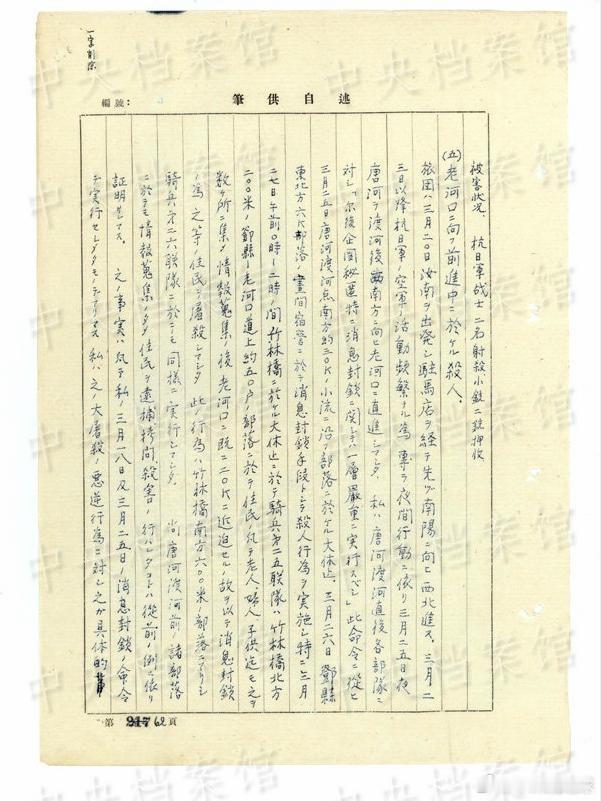 一字削除
述自供筆
編號:
被害状况、抗日軍战士二名射殺小銃二銃押收
(五)老河口ニ向フ前進中ニ於ケル殺人、
旅団ハ三月二〇日汝南ヲ出発シ駐馬店ヲ経テ先ツ南陽ニ向ヒ西北進ス、三月二
三日以降抗日軍ノ空軍ノ活動頻繁ナル為専ラ夜間行動ニ依リ三月二五日夜
唐河ヲ渡河後南方ニ向ヒ老河口ニ直進シマシタ 私ハ唐河渡河直後各部隊ニ
対シ「尔後企図秘匿特ニ消息封鎖ニ関シテハ一層嚴重ニ実行スベシ」此命令ニ從ヒ
三月二五日唐河渡河点南方約三〇K小流ニ沿フ部落ニ於ケル大休止、三月二六日鄧縣
東北方六K部落ノ晝間宿營ニ於テ消息封鎖手段トシテ殺人行為ヲ実施シ特ニ三月
二七日午前〇時ー二時ノ間竹林橋ニ於ケル大休止ニ於テ騎兵第二五联隊ハ竹林橋北方
二〇〇米ノ鄧縣ー老河口道上約五〇户ノ部落ニ於テ住民ノ凡テ老人、婦人、子供迄モ之ヲ
数ヶ所ニ集メ情報蒐集ノ後老河口ニ既ニ二〇Kニ近迫セルノ故ヲ以テ消息封鎖
ノ為之等ノ住民ヲ屠殺シマシタ 此ノ行為ハ竹林橋南方六〇〇米ノ部落ニアリシ
騎兵第二六联隊ニ於テモ同様ニ実行シマシタ、尚唐河渡河前ノ諸部落
ニ於テモ情報蒐集ノタメ住民ヲ逮捕拷問殺害ノ行ハレタコトハ從前ノ例ニ依リ
証明出来マス、之ノ事実ハ凡テ私ノ三月一八日及三月二五日ノ消息封鎖ノ命令
ヲ実行セシメタモノデアリマス 私ハ之ノ大屠殺ノ悪逆行為ニ対シ之カ具体的
第 62 頁
中央档案馆